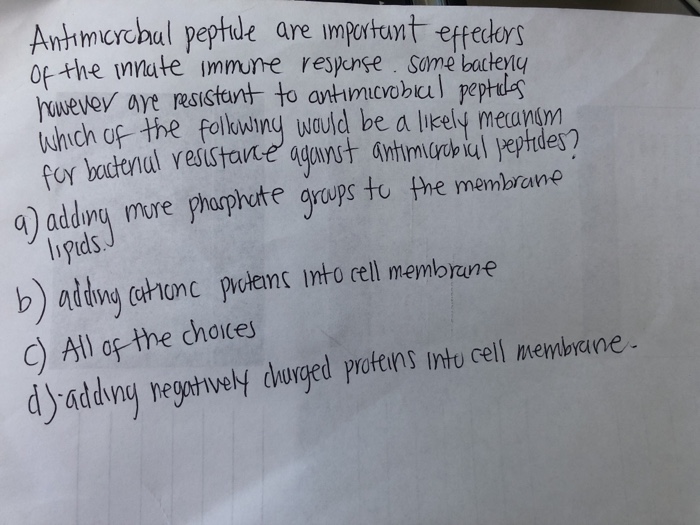 Antimicrobial peptide are important effectors
of the innate immune response. some bacteria
however are resistant to antimicrobical peptides
which of the following would be a likely mecanism
for bacterial resistance against antimicrobial peptides?
a) adding more phosphate groups to the membrane
lipids.
b) adding cationc proteins into cell membrane
c) All of the choices
d) adding negatively charged proteins into cell membrane.